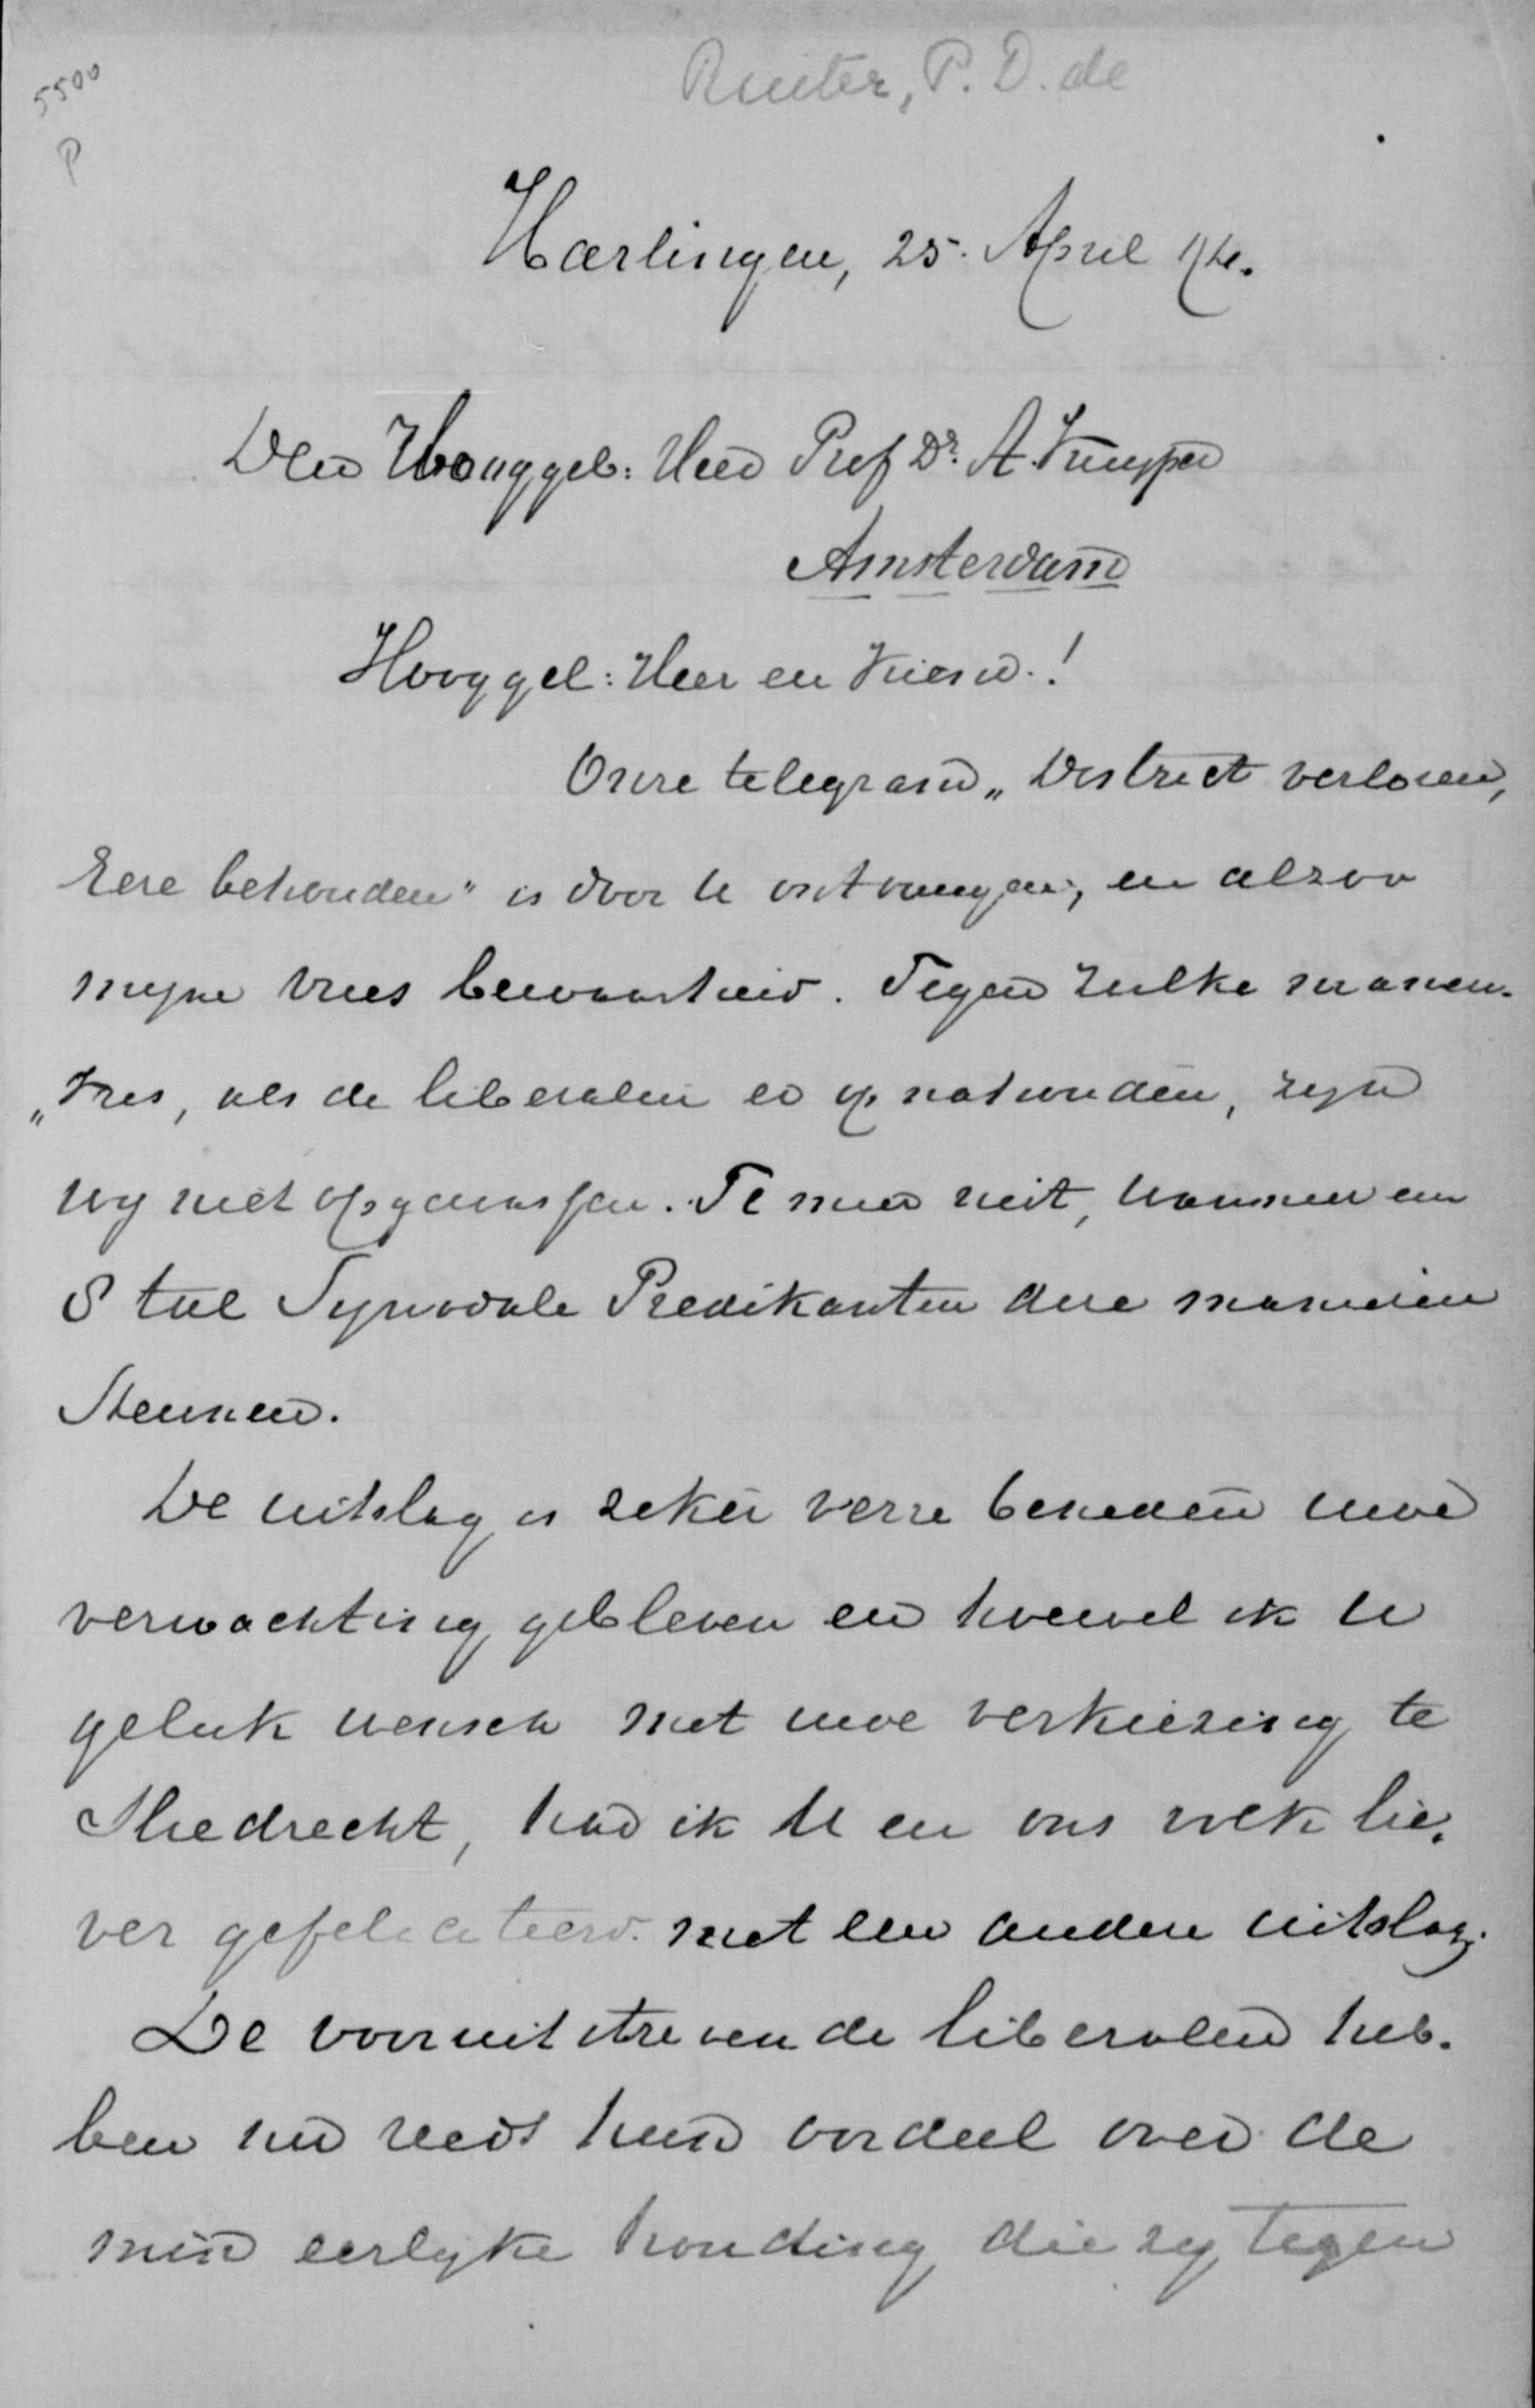 5500
P
Ruiter, P. D. de
Harlingen, 25. April 94.
Den Hooggel: Heer Prof Dr. A. Kuyper
Amsterdam
Hooggel: Heer en Vriend!
Onze telegram „District verloren,
Eere behouden" is door U ontvangen, en alzoo
mijne vrees bewaarheid. Tegen zulke manoeu-
„vres, als de liberalen er op nahouden, zijn
wij niet opgewassen. Te meer niet, wanneer een
8 tal Synodale Predikanten die manieren
Steunen.
De uitslag is zeker verre beneden uwe
verwachting gebleven en hoewel ik U
geluk wensch met uwe verkiezing te
Sliedrecht, had ik U en ons ook lie-
ver gefeliciteerd met een andere uitslag.
De vooruitstrevende liberalen heb-
ben nu reeds hun oordeel over de
min eerlijke houding die zij tegen